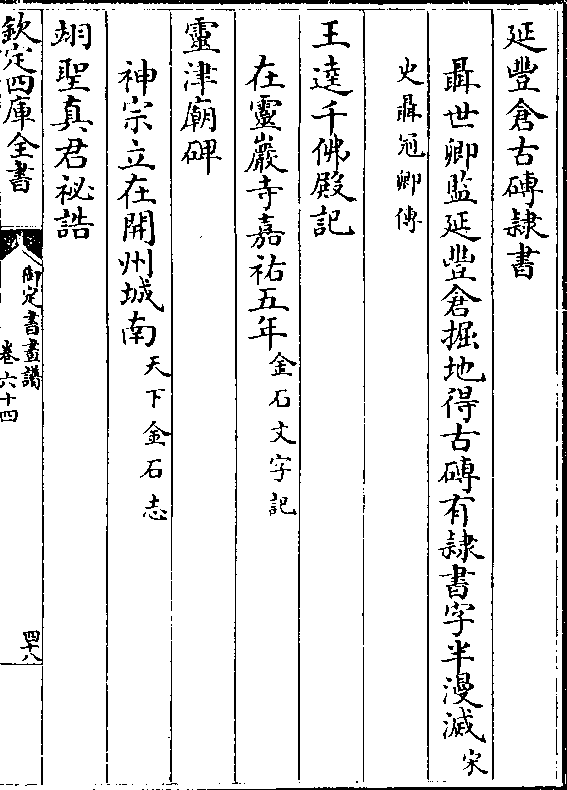 延豐倉古磚隸書
聶世卿監延豐倉掘地得古磚有隸書字半漫滅宋
史聶冠卿傳
王逵千佛殿記
在靈巖寺嘉祐五年金石文字記
靈津廟碑
神宗立在開州城南天下金石志
翊聖真君祕誥
欽定四庫全書
御定書畫譜
卷六十四
四十八